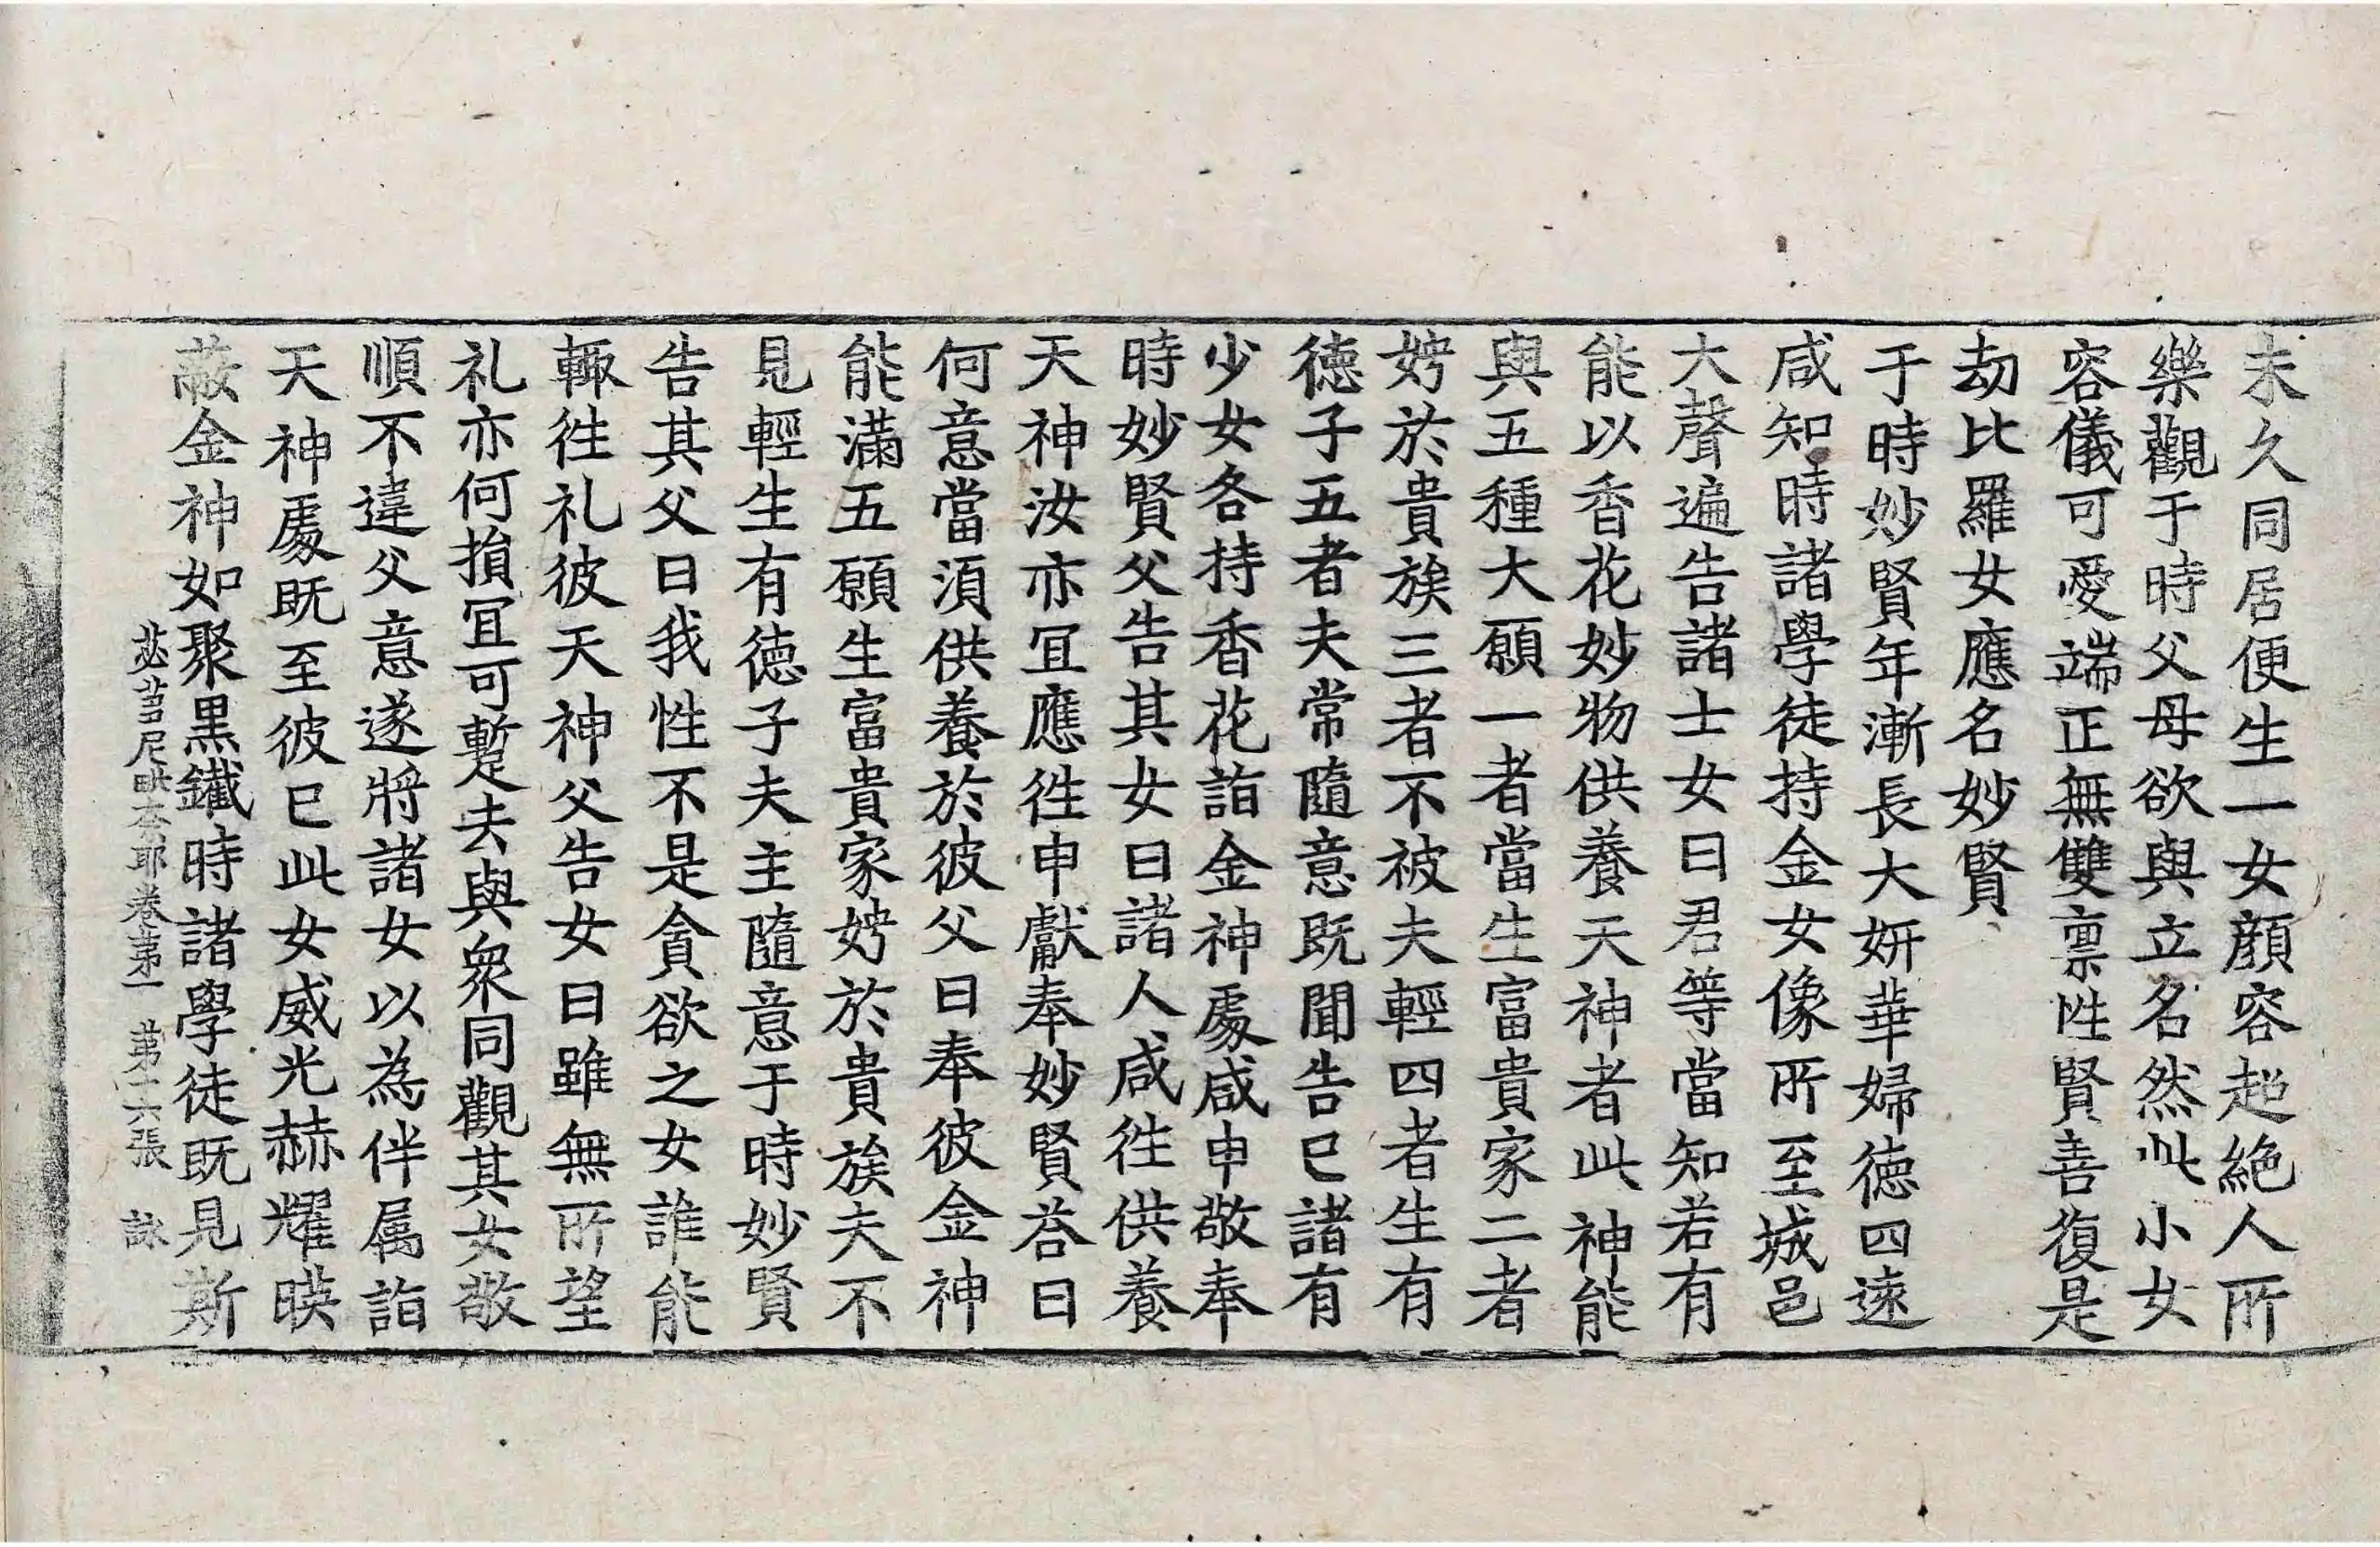 未久同居便生一女顔容超絶人所
樂觀于時父母欲與立名然此小女
容儀可愛端正無雙禀性賢善復是
劫比羅女應名妙賢
于時妙賢年漸長大妍華婦德四遠
咸知時諸學徒持金女像所至城邑
大聲遍告諸士女曰君等當知若有
能以香花妙物供養天神者此神能
與五種大願一者當生富貴家二者
娉於貴族三者不被夫輕四者生有
德子五者夫常隨意既聞告已諸有
少女各持香花詣金神處咸申敬奉
時妙賢父告其女曰諸人咸往供養
天神汝亦冝應往申獻奉妙賢荅曰
何意當須供養於彼父曰奉彼金神
能滿五願生富貴家娉於貴族夫不
見輕生有德子夫主隨意于時妙賢
告其父曰我性不是貪欲之女誰能
輙往礼彼天神父告女曰雖無所望
礼亦何損冝可暫去與衆同觀其女敬
順不違父意遂將諸女以為伴属詣
天神處既至彼已此女威光赫耀暎
蔽金神如聚黒鐵時諸學徒既見斯
苾芻尼毗奈耶卷第一　第十六張　詠